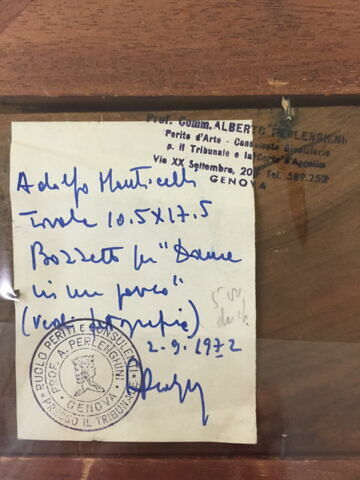 Prof. Comm. ALBERTO PERLENGHINI
Perito d'Arte - Consulente Giudiziario
p. il Tribunale e la Corte d'Appello
Via XX Settembre, 20 Tel. 589.252
GENOVA
Adolfo Monticelli
Tavola 10.5X17.5
Bozzetto per "Dame
in un parco"
(vedi fotografia)
2.9.1972
RUOLO PERITI E CONSULENTI
PROF. A. PERLENGHINI
GENOVA
PRESSO IL TRIBUNALE